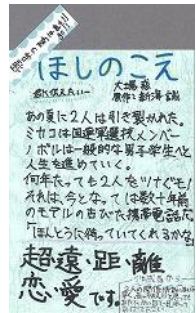 ほしのこえ
大場惑
原作:新海誠
あの夏に2人は引き裂かれた。
ミカコは国連軍選抜メンバー
ノボルは一般的な男子学生へと
人生を進めていく。
何年たっても2人をツナグモノ
それは、今となっては数十年前
のモデルの古びた携帯電話だ。
「ほんとうに待っていてくれるかな
超・遠・距・離
恋・愛です。